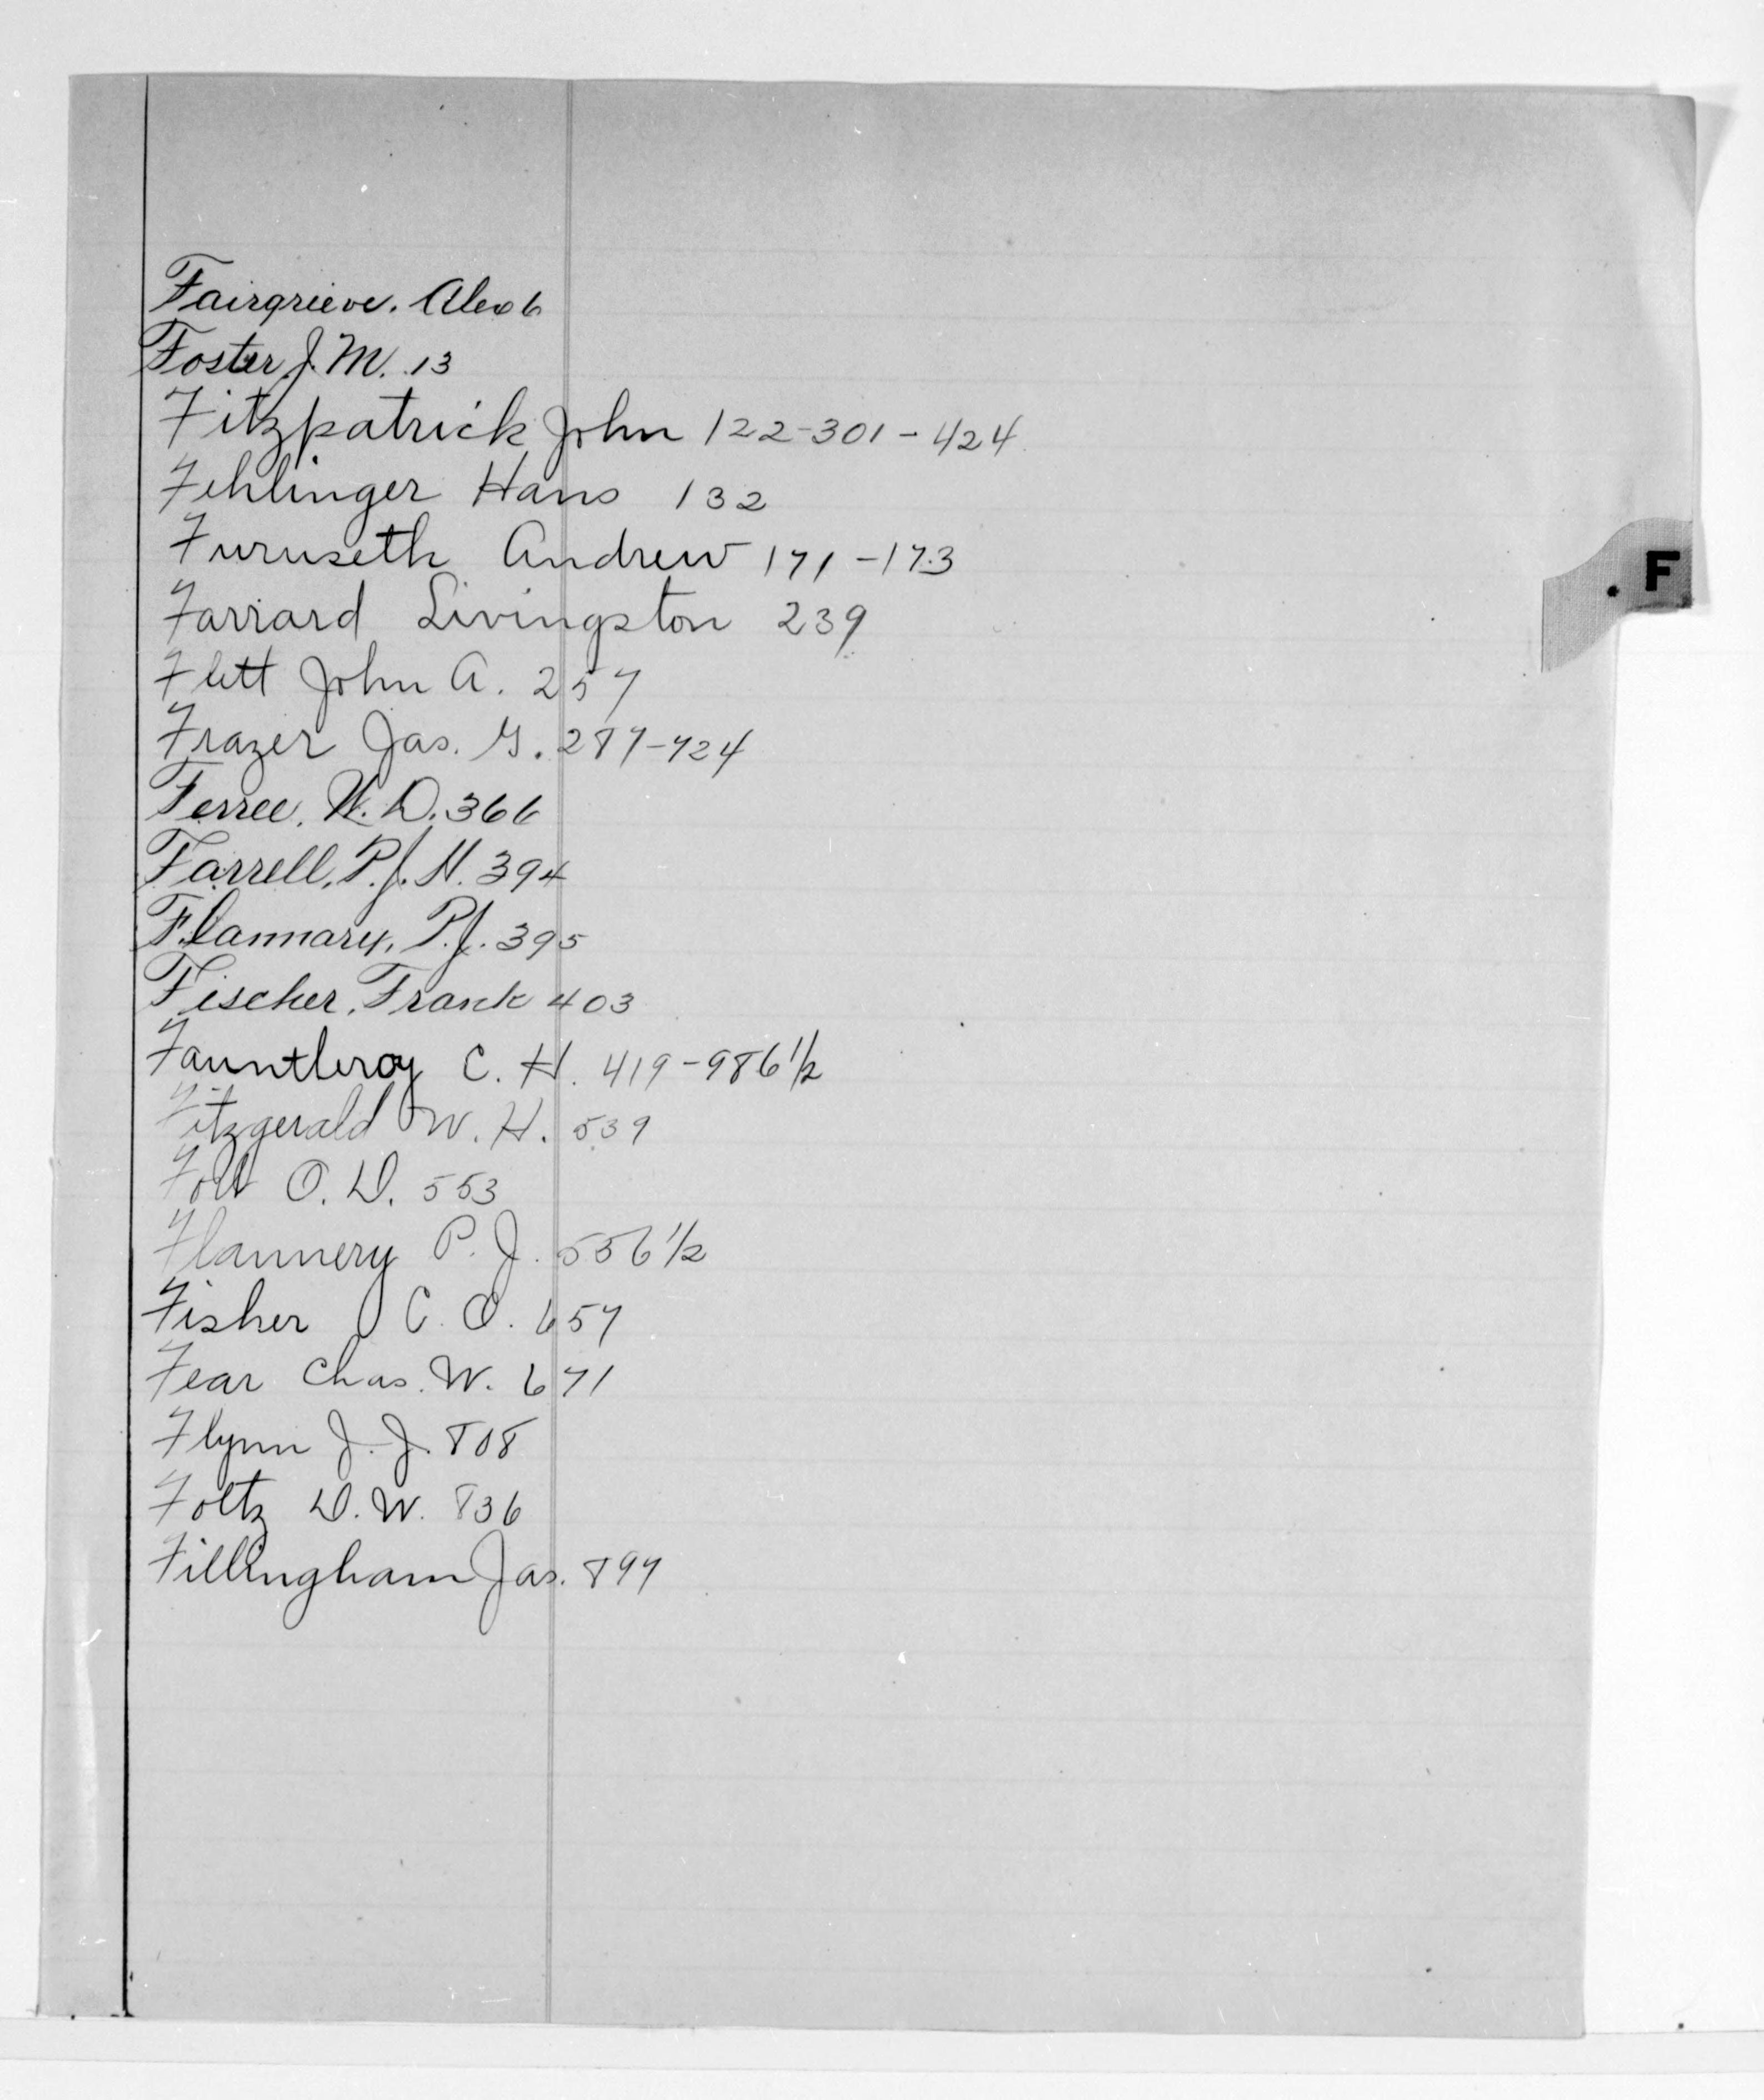 Fairgrieve. Alex 6
Foster J. M. 13
Fitzpatrick John 122-301-424
Fehlinger Hans 132
Furuseth Andrew 171-173
F
Farrard Livingston 239
Flett John A. 257
Frazer Jas. G. 287-724
Ferree, W. D. 366
Farrell, P. J. H. 394
Flannary, P. J. 395
Fischer, Frank 403
Fauntleroy C. H. 419-986 1/2
Fitzgerald W. H. 539
O. D. 553
Flannery P. J. 556 1/2
Fisher C. O. 657
Fear Chas. W. 671
Flynn J. J. 808
Foltz D. W. 836
Fillingham Jas. 897